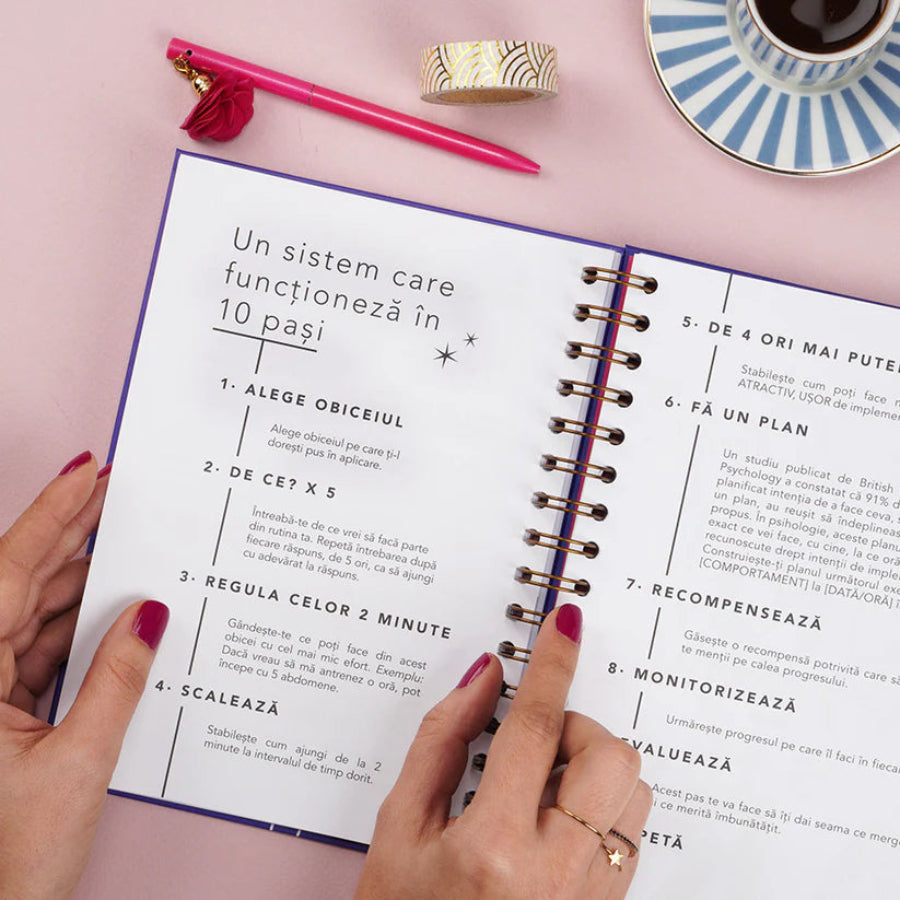 Un sistem care
funcționeză în
10 pași
1. ALEGE OBICEIUL
Alege obiceiul pe care ți-l
dorești pus în aplicare.
2. DE CE? X 5
Întreabă-te de ce vrei să facă parte
din rutina ta. Repetă întrebarea după
fiecare răspuns, de 5 ori, ca să ajungi
cu adevărat la răspuns.
3. REGULA CELOR 2 MINUTE
Gândește-te ce poți face din acest
obicei cu cel mai mic efort. Exemplu:
Dacă vreau să mă antrenez o oră, pot
începe cu 5 abdomene.
4. SCALEAZĂ
Stabilește cum ajungi de la 2
minute la intervalul de timp dorit.
5. DE 4 ORI MAI PUTE
Stabilește cum poți face
ATRACTIV, UȘOR de implemen
6. FĂ UN PLAN
Un studiu publicat de British
Psychology a constatat că 91% d
planificat intenția de a face ceva,
un plan, au reușit să îndeplineas
propus. În psihologie, aceste planu
exact ce vei face, cu cine, la ce or
recunoscute drept intenții de imple
Construiește-ți planul următorul exe
[COMPORTAMENT] la [DATĂ/ORĂ]
7. RECOMPENSEAZĂ
Găsește o recompensă potrivită care să
te mențină pe calea progresului.
8. MONITORIZEAZĂ
Urmărește progresul pe care îl faci în fiecar
EVALUEAZĂ
Acest pas te va face să îți dai seama ce merg
și ce merită îmbunătățit.
PETĂ